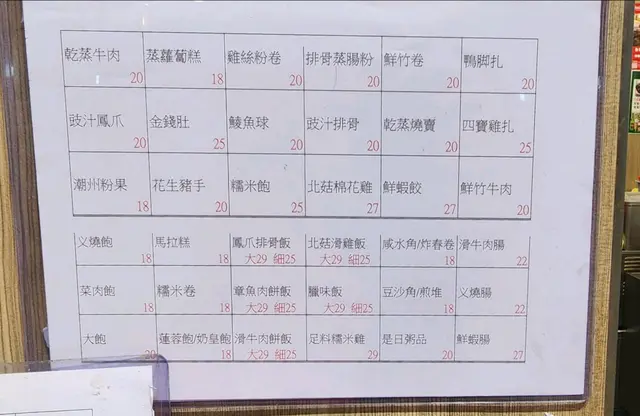 乾蒸牛肉 20 蒸蘿蔔糕 18 雞絲粉卷 20 排骨蒸腸粉 20 鮮竹卷 20 鴨脚扎 20
豉汁鳳爪 20 金錢肚 25 鯪魚球 20 豉汁排骨 20 乾蒸燒賣 20 四寶雞扎 25
潮州粉果 18 花生豬手 20 糯米飽 25 北菇棉花雞 27 鮮蝦餃 27 鮮竹牛肉 20
义燒飽 18 馬拉糕 18 鳳爪排骨飯 大29 細25 北菇滑雞飯 大29 細25 咸水角/炸春卷 18 滑牛肉腸 22
菜肉飽 18 糯米卷 18 章魚肉餅飯 大29 細25 臘味飯 大29 細25 豆沙角/煎堆 18 义燒腸 22
大飽 20 蓮蓉飽/奶皇飽 18 滑牛肉餅飯 大29 細25 足料糯米雞 29 是日粥品 20 鮮蝦腸 27